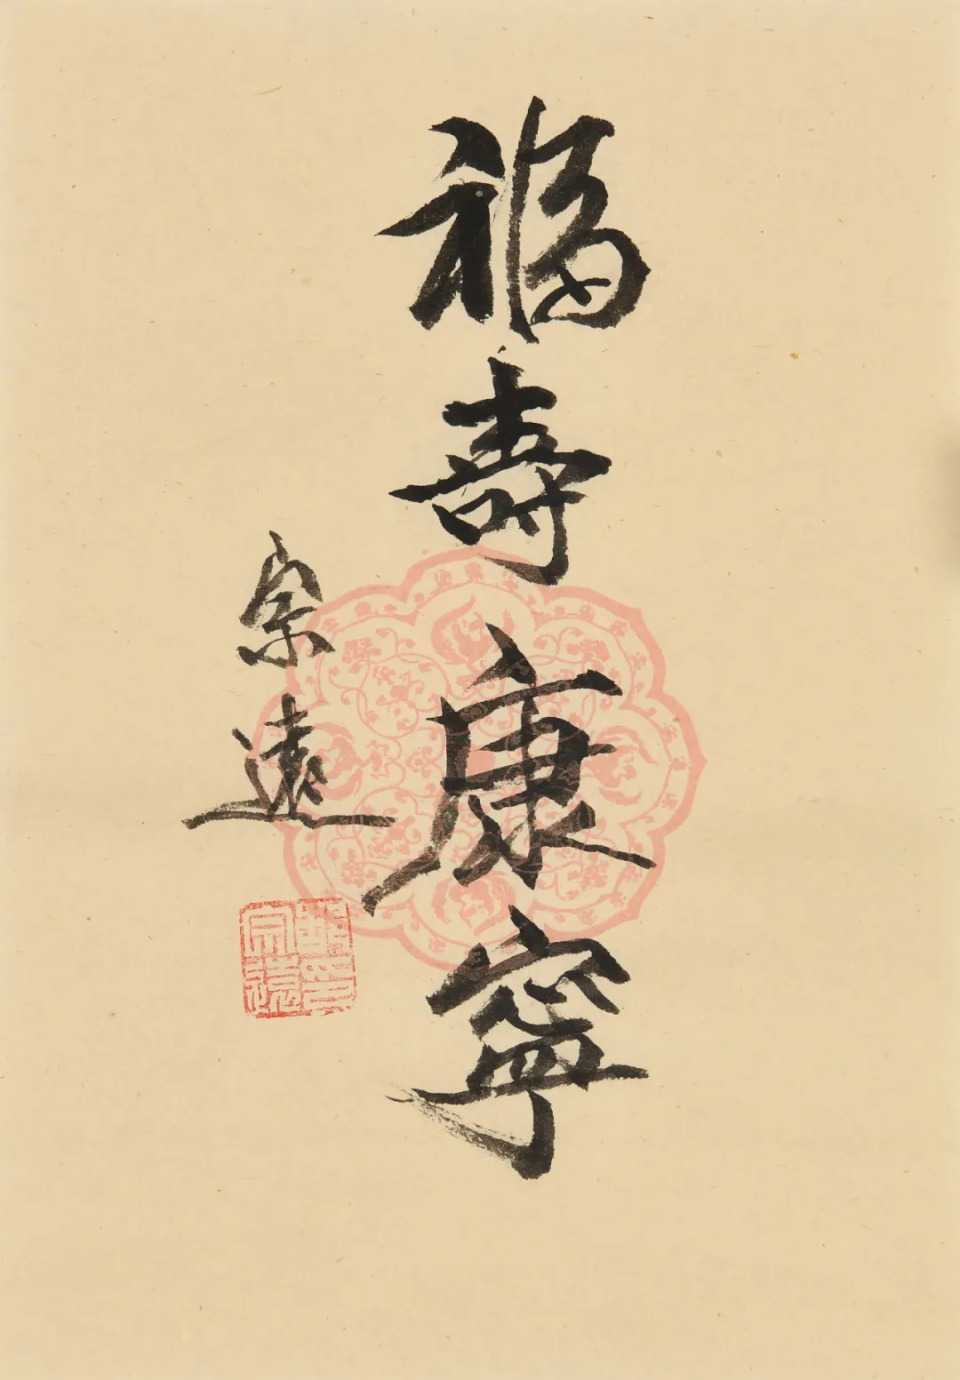 福壽康寧
宗遠